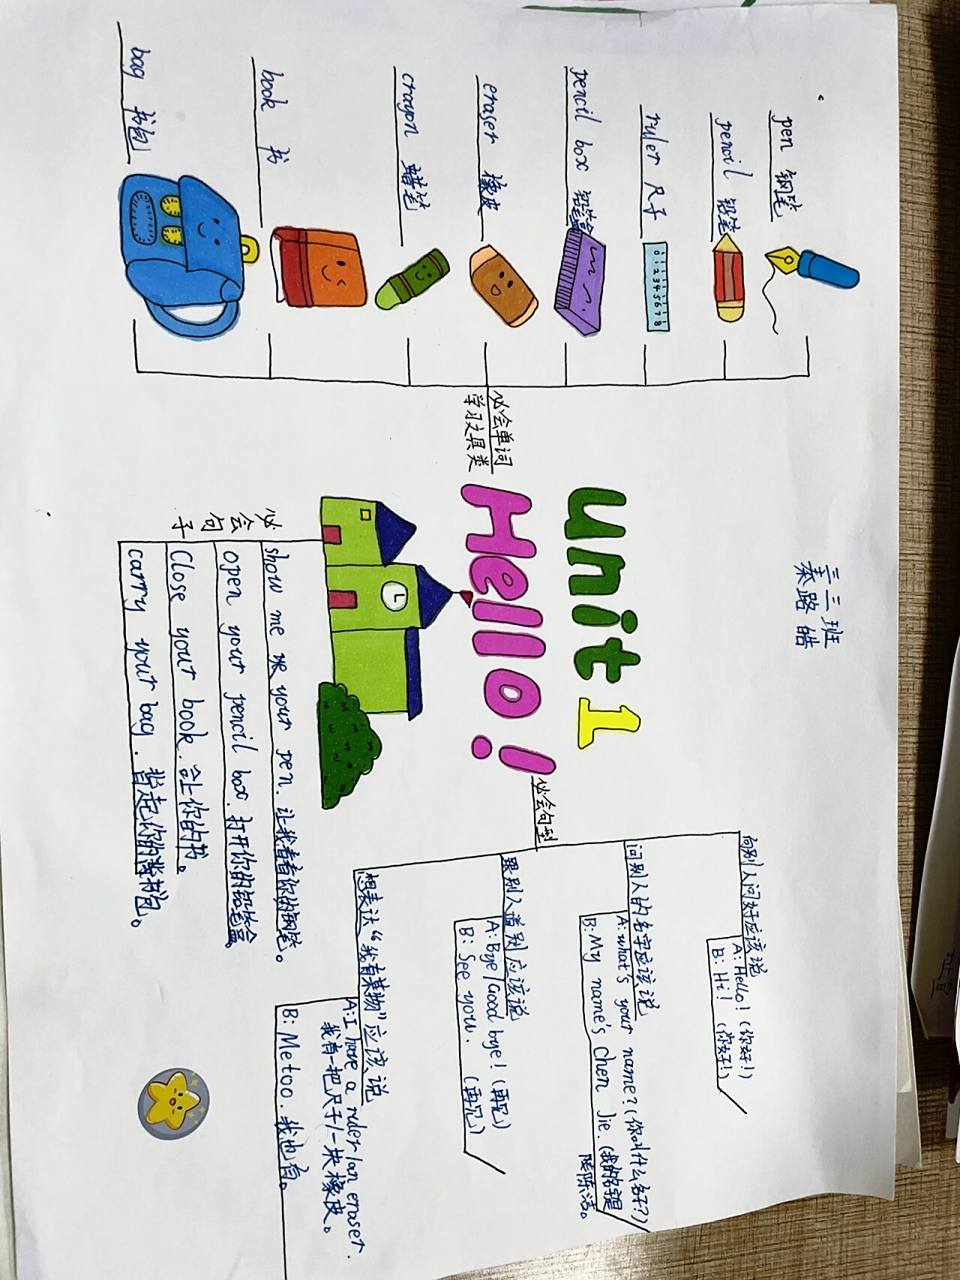 三三班
秦路皓
unit 1
Hello!
必会单词
学习文具类
pen 钢笔
pencil 铅笔
ruler 尺子
0 1 2 3 4 5 6 7 8
pencil box 铅笔盒
eraser 橡皮
crayon 蜡笔
book 书
bag 书包
必会句型
向别人问好应该说
A: Hello! (你好!)
B: Hi! (你好!)
问别人的名字应该说
A: what's your name? (你叫什么名字?)
B: My name's Chen Jie. (我的名字是
陈洁。
跟别人道别应该说
A: Bye/Good bye! (再见)
B: See you. (再见)
想表达“我有某物”应该说
A: I have a ruler/an eraser.
我有一把尺子/一块橡皮。
B: Me too. 我也有。
必会句子
show me your pen. 让我看看你的钢笔。
open your pencil box. 打开你的铅笔盒。
Close your book. 合上你的书。
carry your bag. 背起你的书包。